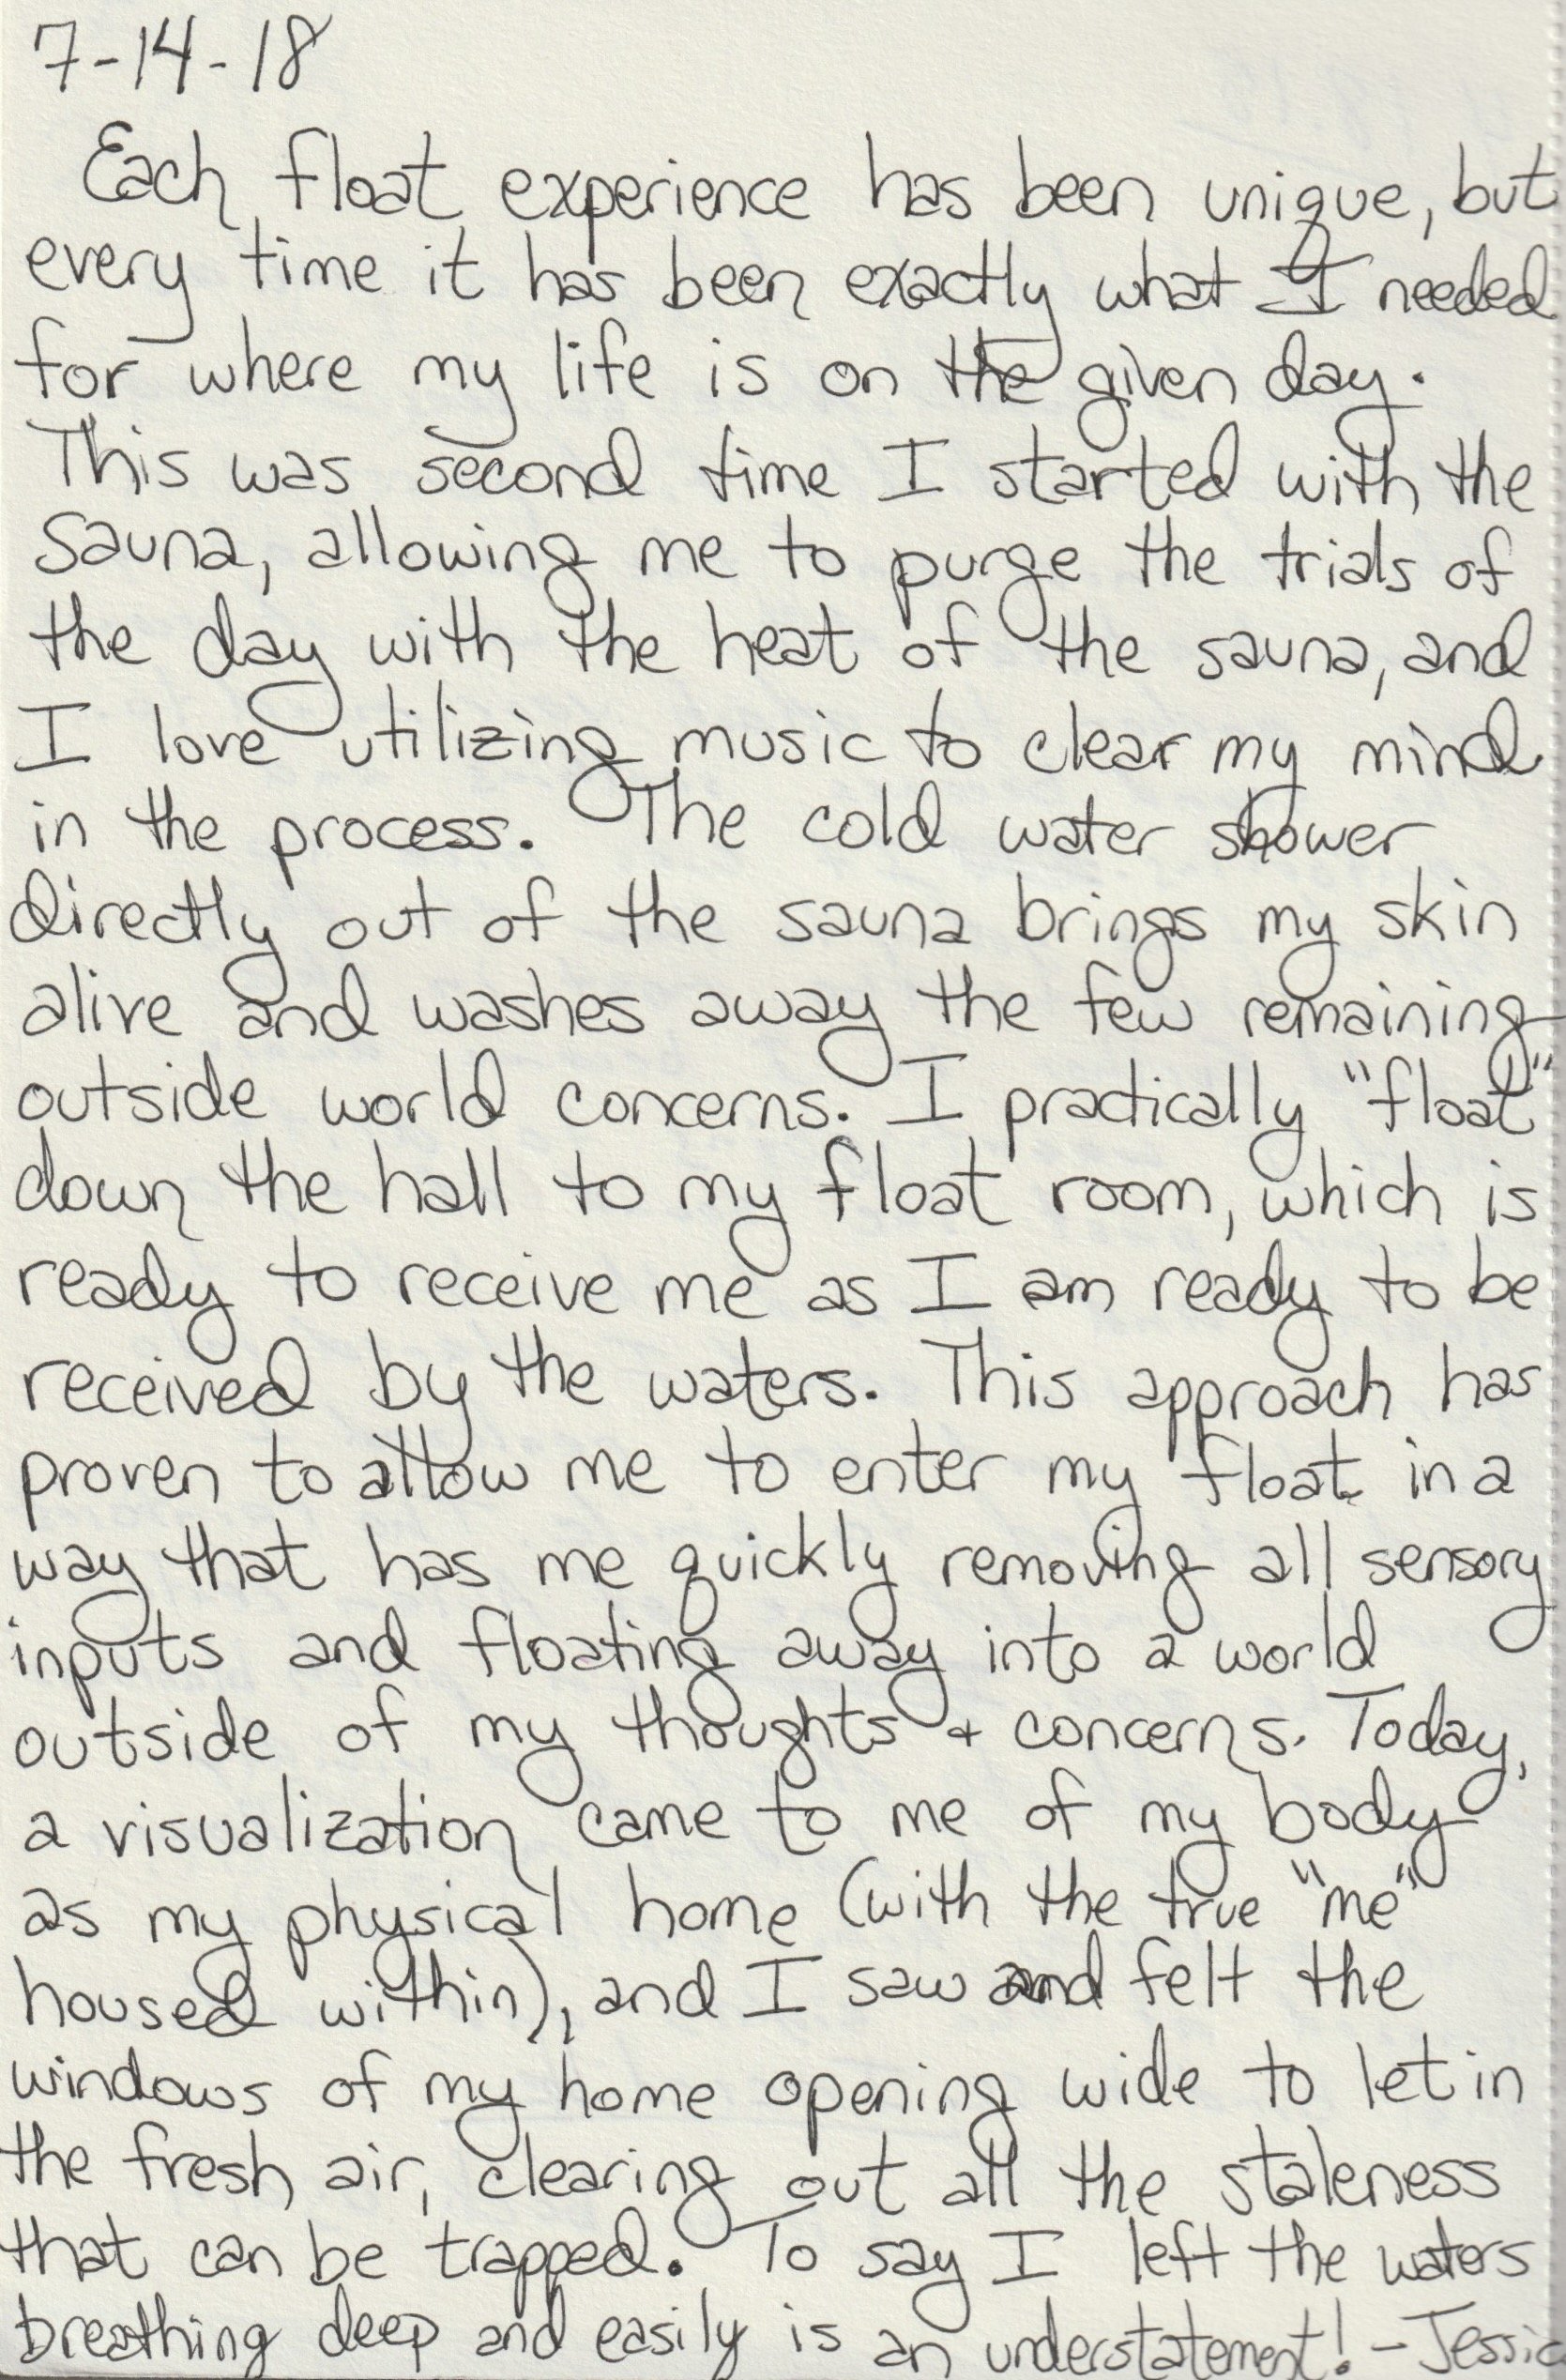 7-14-18
Each float experience has been unique, but
every time it has been exactly what I needed
for where my life is on the given day.
This was second time I started with the
sauna, allowing me to purge the trials of
the day with the heat of the sauna, and
I love utilizing music to clear my mind
in the process. The cold water shower
directly out of the sauna brings my skin
alive and washes away the few remaining
outside world concerns. I practically "float"
down the hall to my float room, which is
ready to receive me as I am ready to be
received by the waters. This approach has
proven to allow me to enter my float in a
way that has me quickly removing all sensory
inputs and floating away into a world
outside of my thoughts + concerns. Today,
a visualization came to me of my body
as my physical home (with the true "me"
housed within), and I saw and felt the
windows of my home opening wide to let in
the fresh air, clearing out all the staleness
that can be trapped. To say I left the waters
breathing deep and easily is an understatement! - Jessic